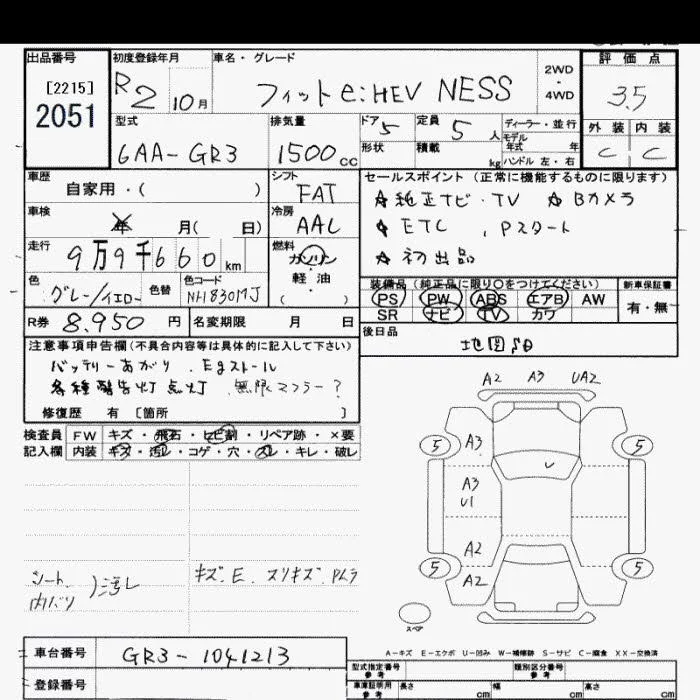 出品番号 初度登録年月 車名・グレード 2WD・4WD 評価点
[2215]
2051
R2 10月 フィットe:HEV NESS 3.5
型式 排気量 ドア 定員 ディーラー・並行 外装 内装
6AA-GR3 1500cc 5 5人 モデル年式 年 C C
形状 積載 kg ハンドル 左・右
車歴 自家用・( ) シフト FAT
セールスポイント (正常に機能するものに限ります)
☆純正ナビ・TV ☆Bカメラ
☆ETC 、Pスタート
☆初出品
車検 年 月( 日) 冷房 AAC
走行 9万9千660km 燃料 ガソリン・軽油・( )
色 グレー/イエロー 色替 色コード NH830MJ
装備品 (純正品に限り〇をつけてください) 新車保証書
PS PW ABS エアB AW 有・無
SR ナビ TV カワ
R券 8,950円 名変期限 月 日
後日品 地図SD
注意事項申告欄(不具合内容等は具体的に記入して下さい)
バッテリーあがり、Egストール
各種警告灯点灯 無限マフラー?
修復歴 有 [箇所 ]
検査員 FW キズ・飛石・ヒビ割・リペア跡・×要
記入欄 内装 キズ・汚レ・コゲ・穴・スレ・キレ・破レ
A2 A3 UA2
5 A3 5
A3
U1
A2
5 A2 5
スペア
シート 内バリ )汚レ
キズ.E.スリキズ.
A-キズ E-エクボ U-凹み W-補修跡 S-サビ C-腐食 XX-交換済
車台番号 GR3-1041213
登録番号
型式指定番号 参考 類別区分番号 参考
車庫証明用 参考 長さ cm 幅 cm 高さ cm